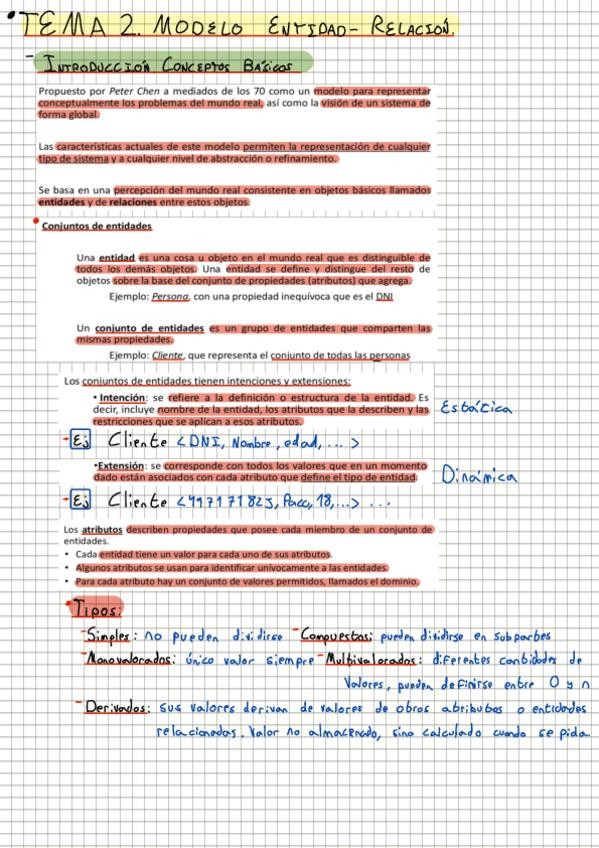 • TEMA 2. MODELO ENTIDAD-RELACIÓN.
- INTRODUCCIÓN CONCEPTOS BÁSICOS
Propuesto por Peter Chen a mediados de los 70 como un modelo para representar
conceptualmente los problemas del mundo real, así como la visión de un sistema de
forma global.
Las características actuales de este modelo permiten la representación de cualquier
tipo de sistema y a cualquier nivel de abstracción o refinamiento.
Se basa en una percepción del mundo real consistente en objetos básicos llamados
entidades y de relaciones entre estos objetos.
• Conjuntos de entidades
Una entidad es una cosa u objeto en el mundo real que es distinguible de
todos los demás objetos. Una entidad se define y distingue del resto de
objetos sobre la base del conjunto de propiedades (atributos) que agrega.
Ejemplo: Persona, con una propiedad inequívoca que es el DNI
Un conjunto de entidades es un grupo de entidades que comparten las
mismas propiedades.
Ejemplo: Cliente, que representa el conjunto de todas las personas
Los conjuntos de entidades tienen intenciones y extensiones:
• Intención: se refiere a la definición o estructura de la entidad. Es
decir, incluye nombre de la entidad, los atributos que la describen y las
restricciones que se aplican a esos atributos.
Estática
- Ej Cliente <DNI, Nombre, edad, ... >
•Extensión: se corresponde con todos los valores que en un momento
dado están asociados con cada atributo que define el tipo de entidad.
Dinámica
- Ej Cliente <49717182J, Paco, 18, ...> ...
Los atributos describen propiedades que posee cada miembro de un conjunto de
entidades.
• Cada entidad tiene un valor para cada uno de sus atributos.
• Algunos atributos se usan para identificar unívocamente a las entidades.
• Para cada atributo hay un conjunto de valores permitidos, llamados el dominio.
• TIPOS:
- Simples: no pueden dividirse - Compuestos: pueden dividirse en subpartes
- Monovalorados: único valor siempre - Multivalorados: diferentes cantidades de
Valores, pueden definirse entre 0 y n
- Derivados: sus valores derivan de valores de otros atributos o entidades
relacionados. Valor no almacenado, sino calculado cuando se pida.